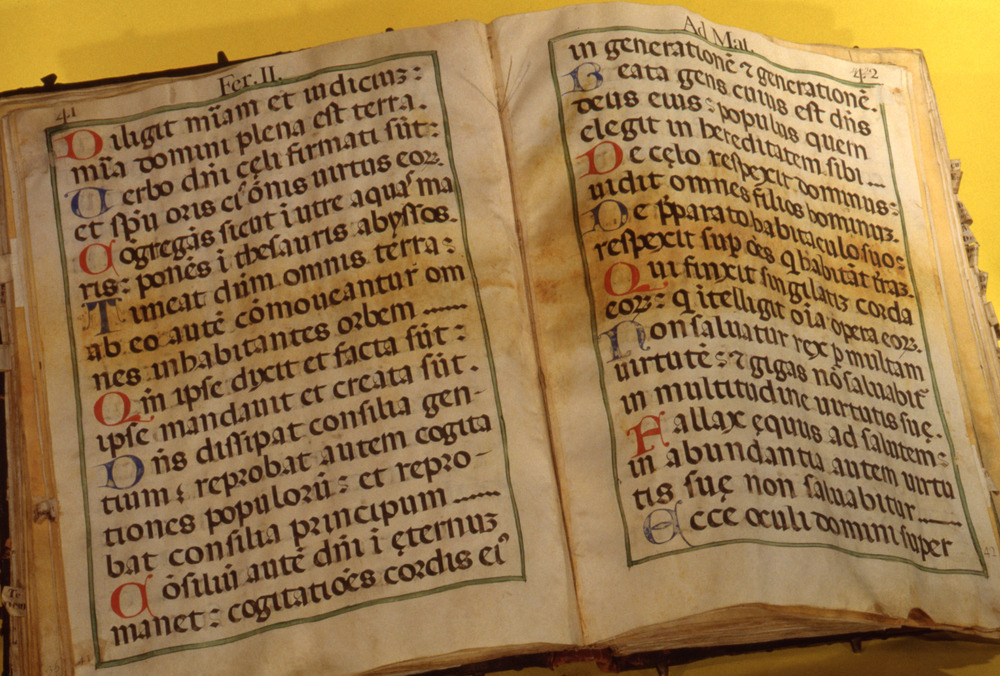 41
Fer. II.
Diligit mīam et iudiciuʒ:
mīa domini plena est terra.
Uerbo dnī cęli firmati sūt:
et spū oris eiꝰ ōnis uirtus eoꝝ.
Cōgregās sicut i utre aquas ma
ris: ponēs i thesauris abyssos.
Timeat dnm omnis terra:
ab eo autē cōmoueantur om
nes inhabitantes orbem
Qm ipse dixit et facta sūt:
ipse mandauit et creata sūt.
Dns dissipat consilia gen-
tium: reprobat autem cogita
tiones populorū: et repro-
bat consilia principum
Cōsiliū autē dnī i ęternuʒ
manet: cogitatiōes cordis eiꝰ
Ad Mat.
42
in generationē ⁊ generationē.
Beata gens cuius est dns
deus eius: populus quem
elegit in hereditatem sibi
De cęlo respexit dominus:
uidit omnes filios hominuʒ.
De p̄parato habitaculo suo:
respexit sup oēs q habitāt trāʒ.
Qui finxit singilatiʒ corda
eoꝝ: q ītelligit oīa opera eoꝝ.
Non saluatur rex p multam
uirtutē: ⁊ gigas nō saluabit
in multitudine uirtutis suę.
Fallax ęquus ad salutem:
in abundantia autem uirtu
tis suę non saluabitur
Ecce oculi domini super